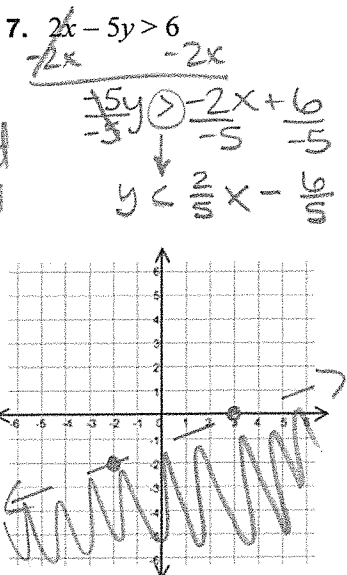 7. 2x – 5y > 6
-2x -2x
-5y > -2x + 6
-5 -5 -5
y < 2/5 x - 6/5
6
5
4
3
2
1
-6 -5 -4 -3 -2 -1 0 1 2 3 4 5
-1
-2
-3
-4
-5
-6